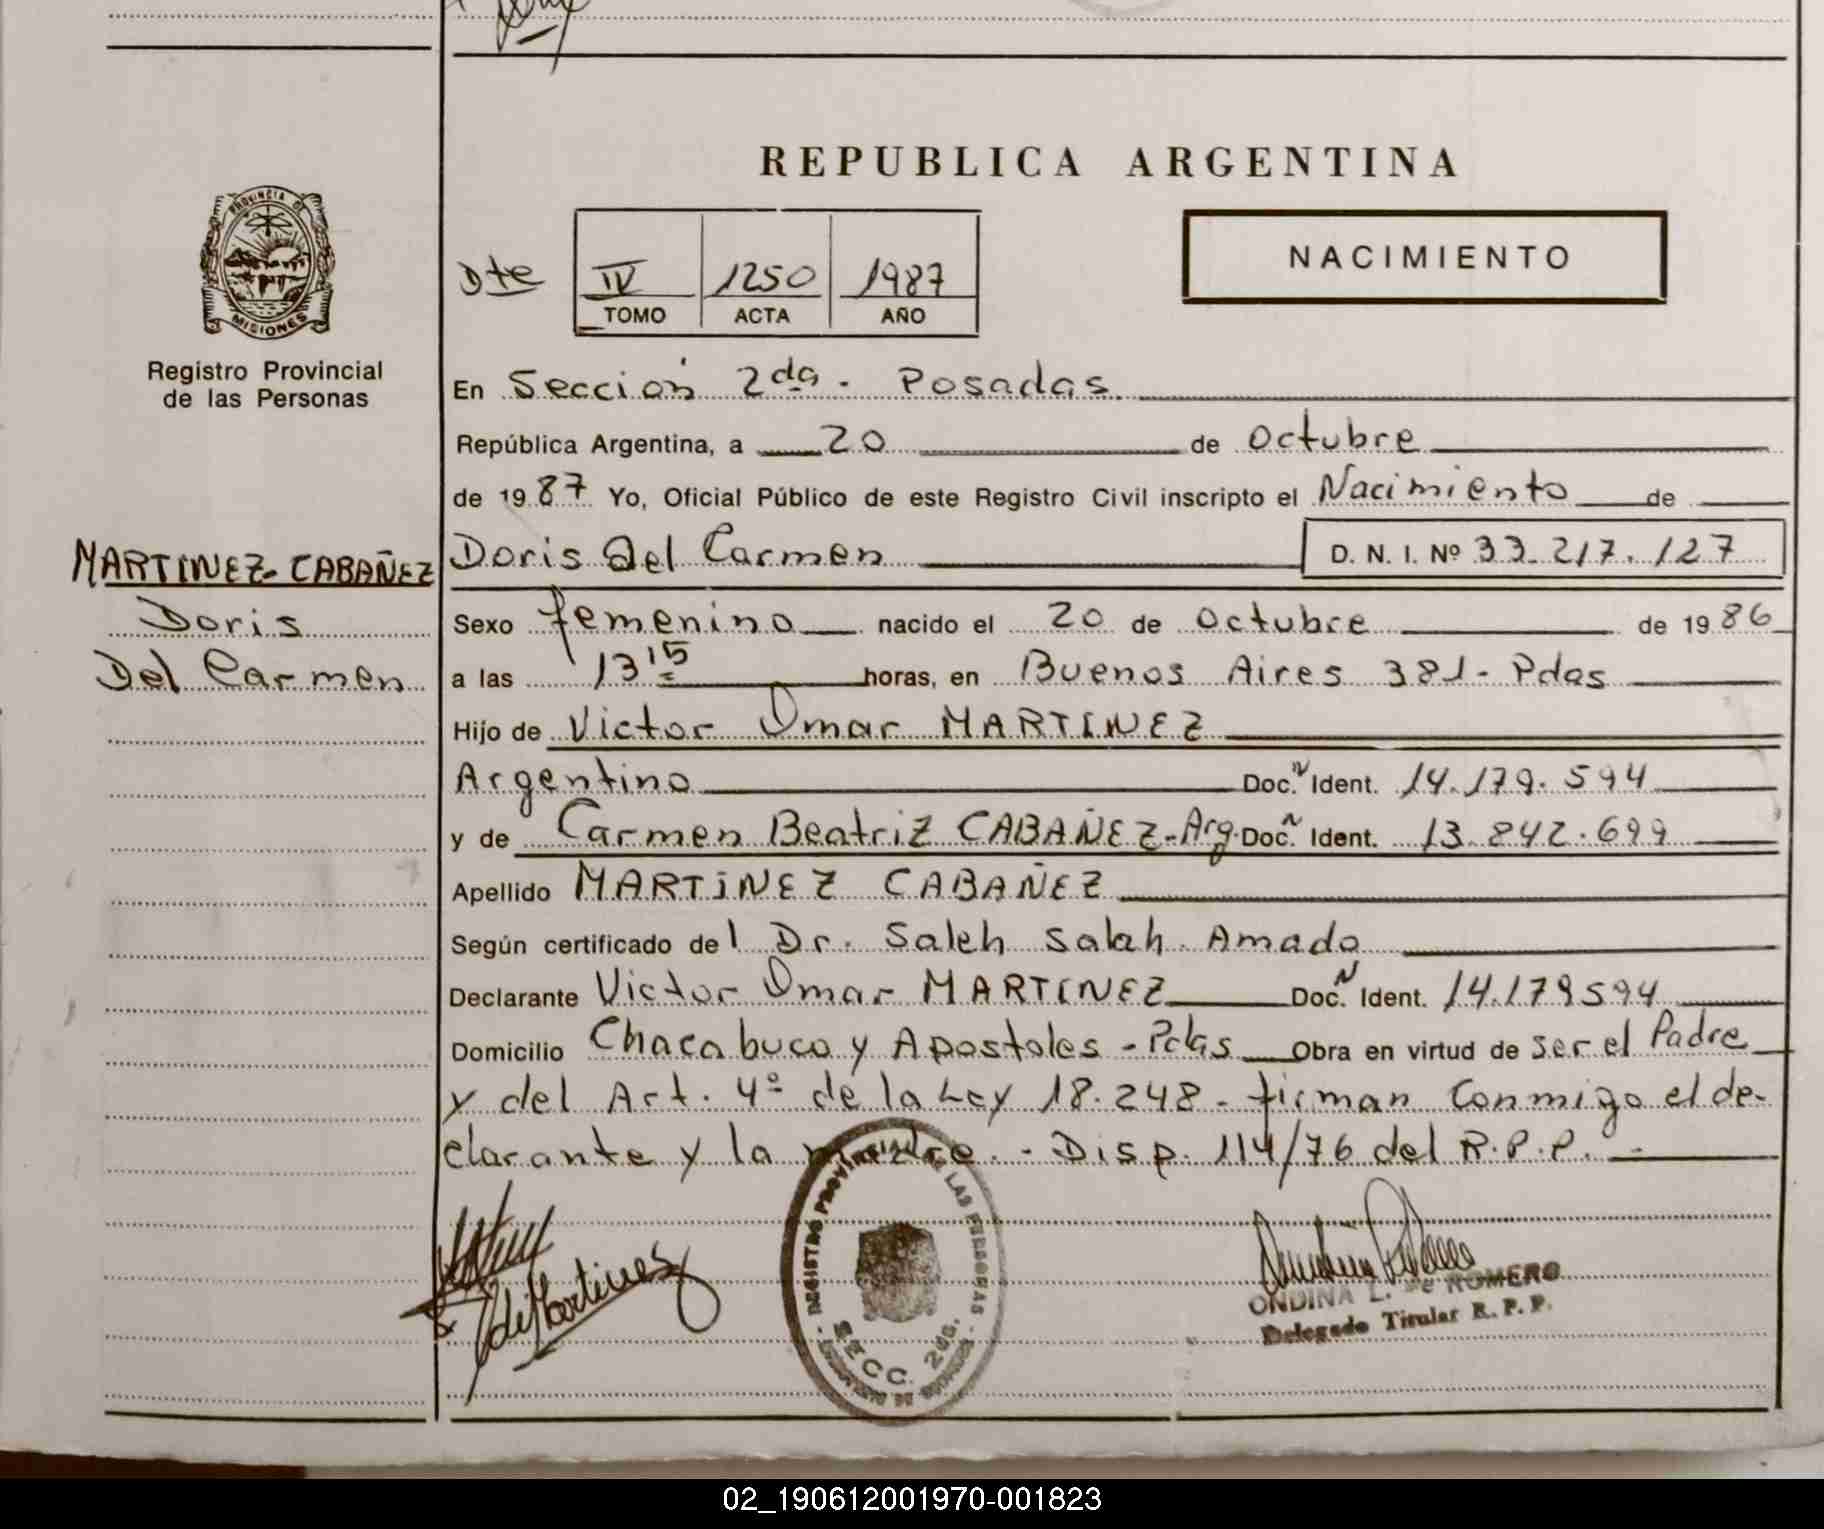 REPUBLICA ARGENTINA
PROVINCIA DE
MISIONES
Registro Provincial
de las Personas
Dte IV 1250 1987
TOMO ACTA AÑO
NACIMIENTO
En Sección 2da. Posadas.
República Argentina, a 20 de Octubre
de 1987 Yo, Oficial Público de este Registro Civil inscripto el Nacimiento de
MARTINEZ-CABAÑEZ
Doris
Del Carmen
Doris Del Carmen D. N. I. Nº 33.217.127
Sexo femenino nacido el 20 de Octubre de 1986
a las 13 15 horas, en Buenos Aires 381- Pdas
Hijo de Victor Omar MARTINEZ
Argentino Doc. N Ident. 14.179.594
y de Carmen Beatriz CABAÑEZ-Arg. Doc. N Ident. 13.842.699
Apellido MARTINEZ CABAÑEZ
Según certificado del Dr. Saleh Salah Amado
Declarante Victor Omar MARTINEZ Doc. N Ident. 14.179594
Domicilio Chacabuco y Apostoles - Pdas Obra en virtud de ser el Padre
y del Art. 4º de la Ley 18.248 - firman conmigo el de-
clarante y la madre. - Disp. 114/76 del R.P.P. -
de Martinez
REGISTRO PROVINCIAL DE LAS PERSONAS
SECC. 2da.
ONDINA L. de ROMERO
Delegado Titular R. P. P.
02_190612001970-001823